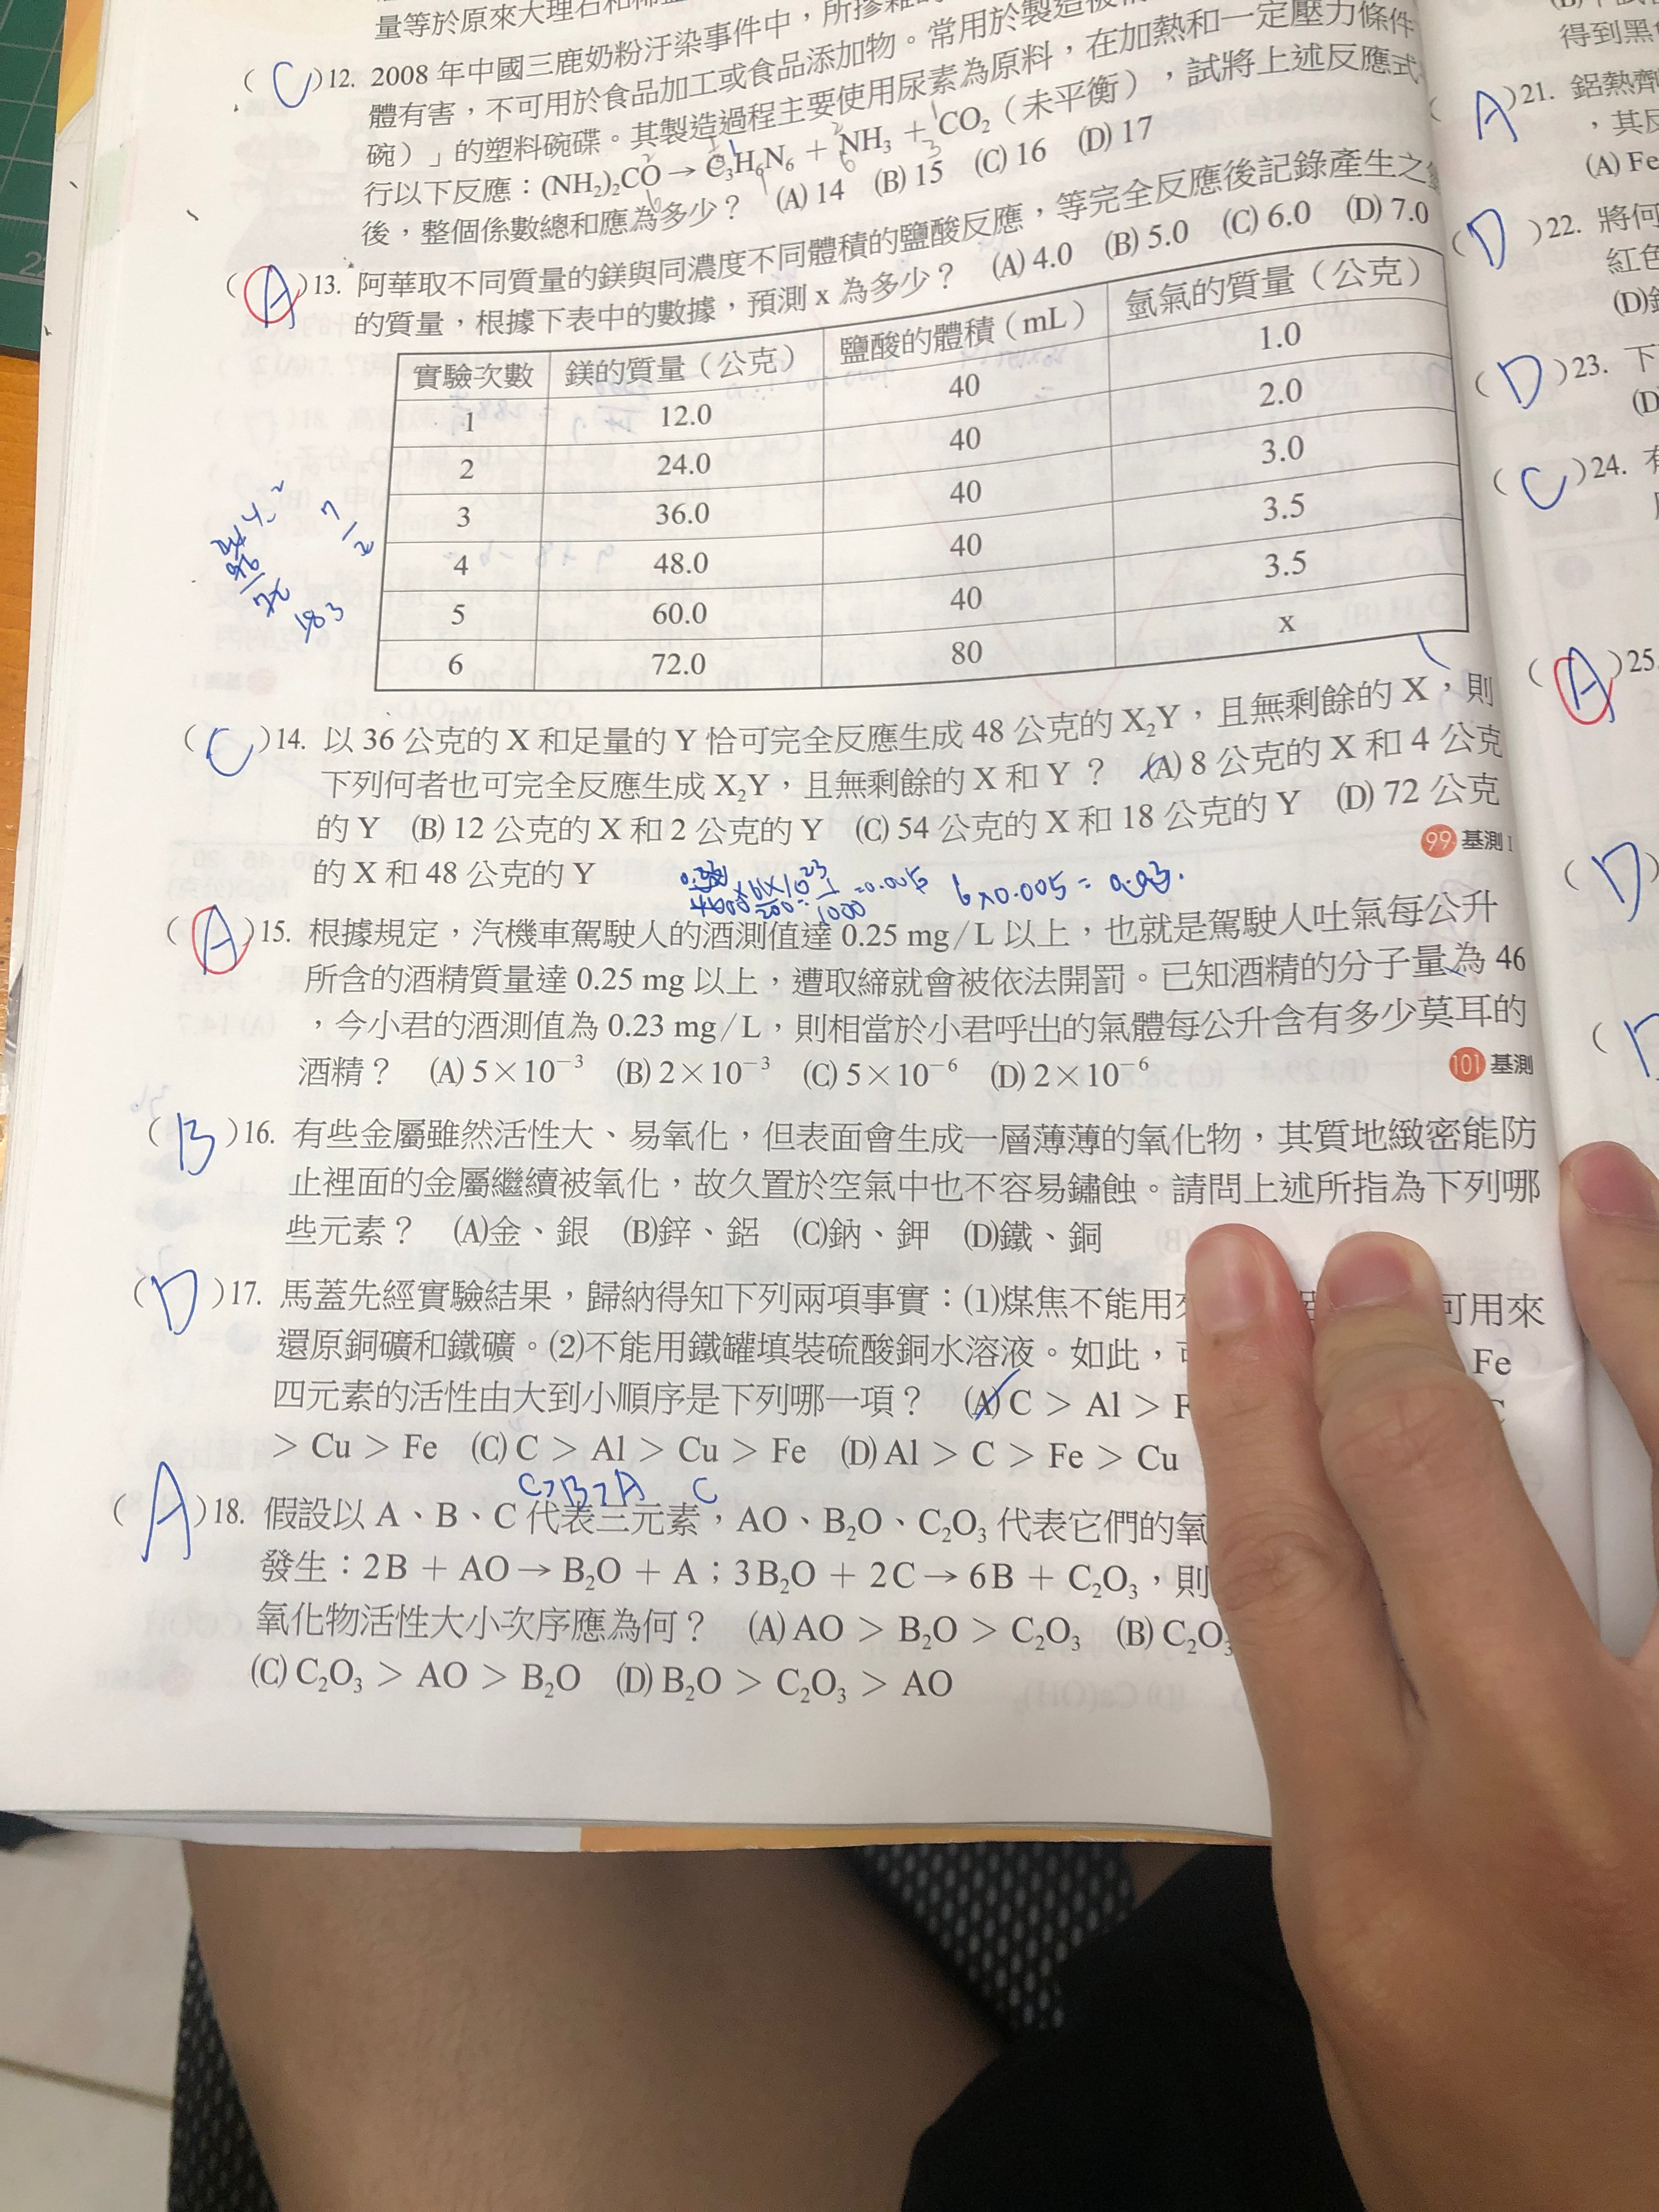 量等於原來大理石和稀
( C )12. 2008 年中國三鹿奶粉汙染事件中,所摻雜的
體有害,不可用於食品加工或食品添加物。常用於製造被
碗)」的塑料碗碟。其製造過程主要使用尿素為原料,在加熱和一定壓力條件
行以下反應:(NH₂)₂CO → C₃H₆N₆ + NH₃ + CO₂(未平衡),試將上述反應式
後,整個係數總和應為多少? (A) 14 (B) 15 (C) 16 (D) 17
( A )13. 阿華取不同質量的鎂與同濃度不同體積的鹽酸反應,等完全反應後記錄產生之
的質量,根據下表中的數據,預測 x 為多少? (A) 4.0 (B) 5.0 (C) 6.0 (D) 7.0
實驗次數 鎂的質量(公克) 鹽酸的體積(mL) 氫氣的質量(公克)
1 12.0 40 1.0
2 24.0 40 2.0
3 36.0 40 3.0
4 48.0 40 3.5
5 60.0 40 3.5
6 72.0 80 x
( C )14. 以 36 公克的 X 和足量的 Y 恰可完全反應生成 48 公克的 X₂Y,且無剩餘的 X,則
下列何者也可完全反應生成 X₂Y,且無剩餘的 X 和 Y? (A) 8 公克的 X 和 4 公克
的 Y (B) 12 公克的 X 和 2 公克的 Y (C) 54 公克的 X 和 18 公克的 Y (D) 72 公克
的 X 和 48 公克的 Y
99 基測 I
=0.005 6×0.005=0.03.
( A )15. 根據規定,汽機車駕駛人的酒測值達 0.25 mg/L 以上,也就是駕駛人吐氣每公升
所含的酒精質量達 0.25 mg 以上,遭取締就會被依法開罰。已知酒精的分子量為 46
,今小君的酒測值為 0.23 mg/L,則相當於小君呼出的氣體每公升含有多少莫耳的
酒精? (A) 5×10⁻³ (B) 2×10⁻³ (C) 5×10⁻⁶ (D) 2×10⁻⁶
101 基測
( B )16. 有些金屬雖然活性大、易氧化,但表面會生成一層薄薄的氧化物,其質地緻密能防
止裡面的金屬繼續被氧化,故久置於空氣中也不容易鏽蝕。請問上述所指為下列哪
些元素? (A)金、銀 (B)鋅、鋁 (C)鈉、鉀 (D)鐵、銅
( D )17. 馬蓋先經實驗結果,歸納得知下列兩項事實:(1)煤焦不能用 可用來
還原銅礦和鐵礦。(2)不能用鐵罐填裝硫酸銅水溶液。如此, Fe
四元素的活性由大到小順序是下列哪一項? (A) C > Al >
> Cu > Fe (C) C > Al > Cu > Fe (D) Al > C > Fe > Cu
C>B>A C
( A )18. 假設以 A、B、C 代表三元素,AO、B₂O、C₂O₃ 代表它們的氧
發生:2B + AO → B₂O + A;3B₂O + 2C → 6B + C₂O₃,則
氧化物活性大小次序應為何? (A) AO > B₂O > C₂O₃ (B) C₂O₃
(C) C₂O₃ > AO > B₂O (D) B₂O > C₂O₃ > AO
得到黑
( A )21. 鋁熱劑
,其反
(A) Fe
( D )22. 將何
紅色
(D)
( D )23. 下
(D
( C )24. 有
( A )25.
( D )